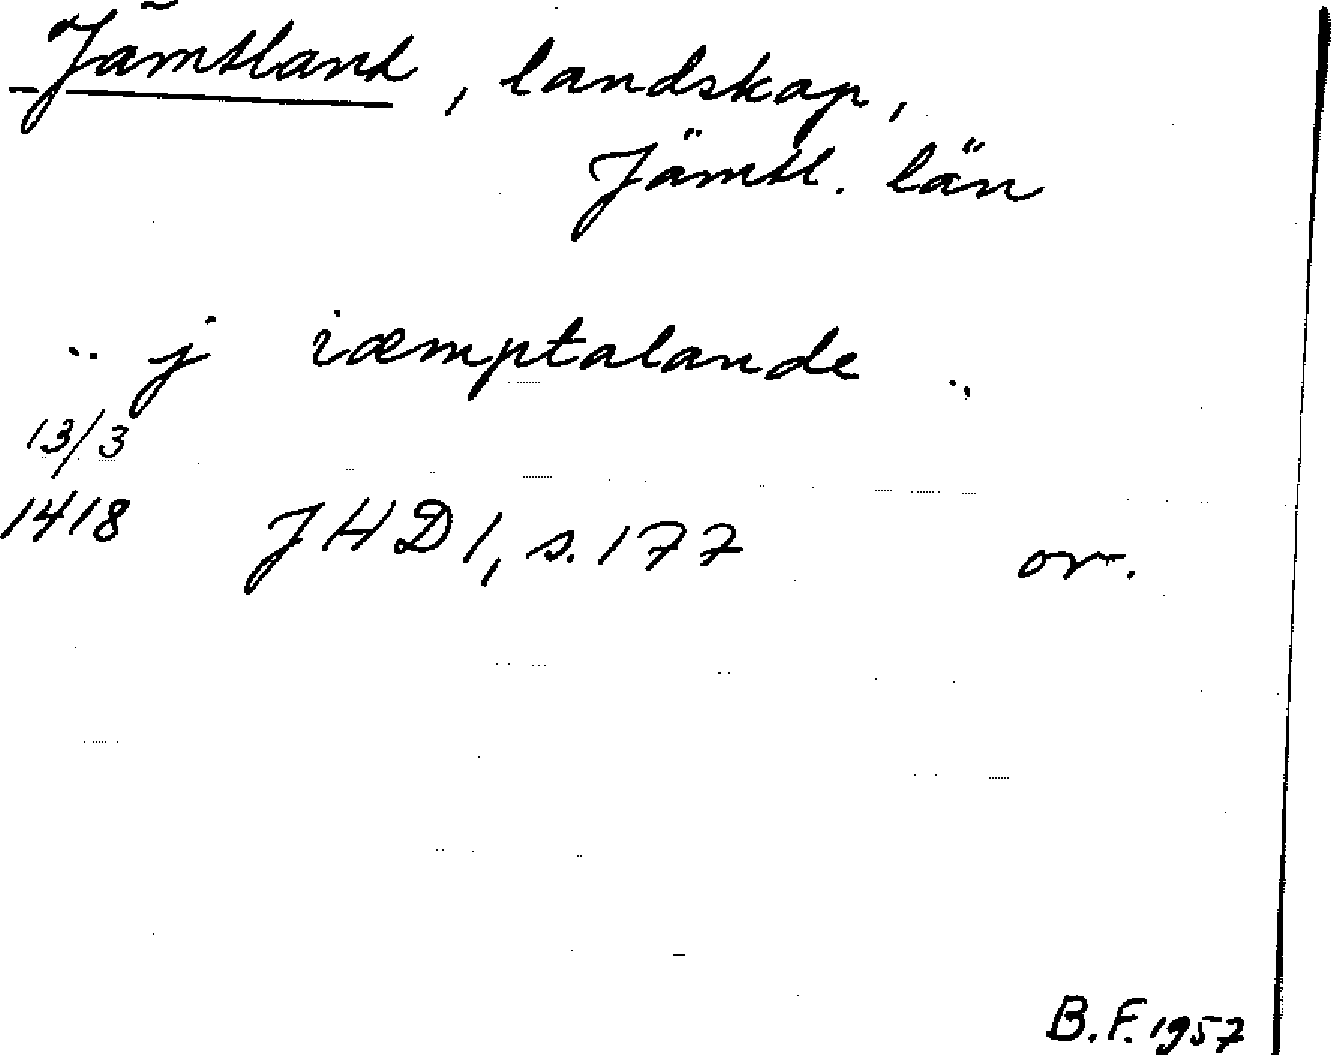 Jämtland, landskap,
Jämtl. län
.. j iæmptalande ..
13/3
1418 JHD 1, s. 177 or.
B.F. 1957